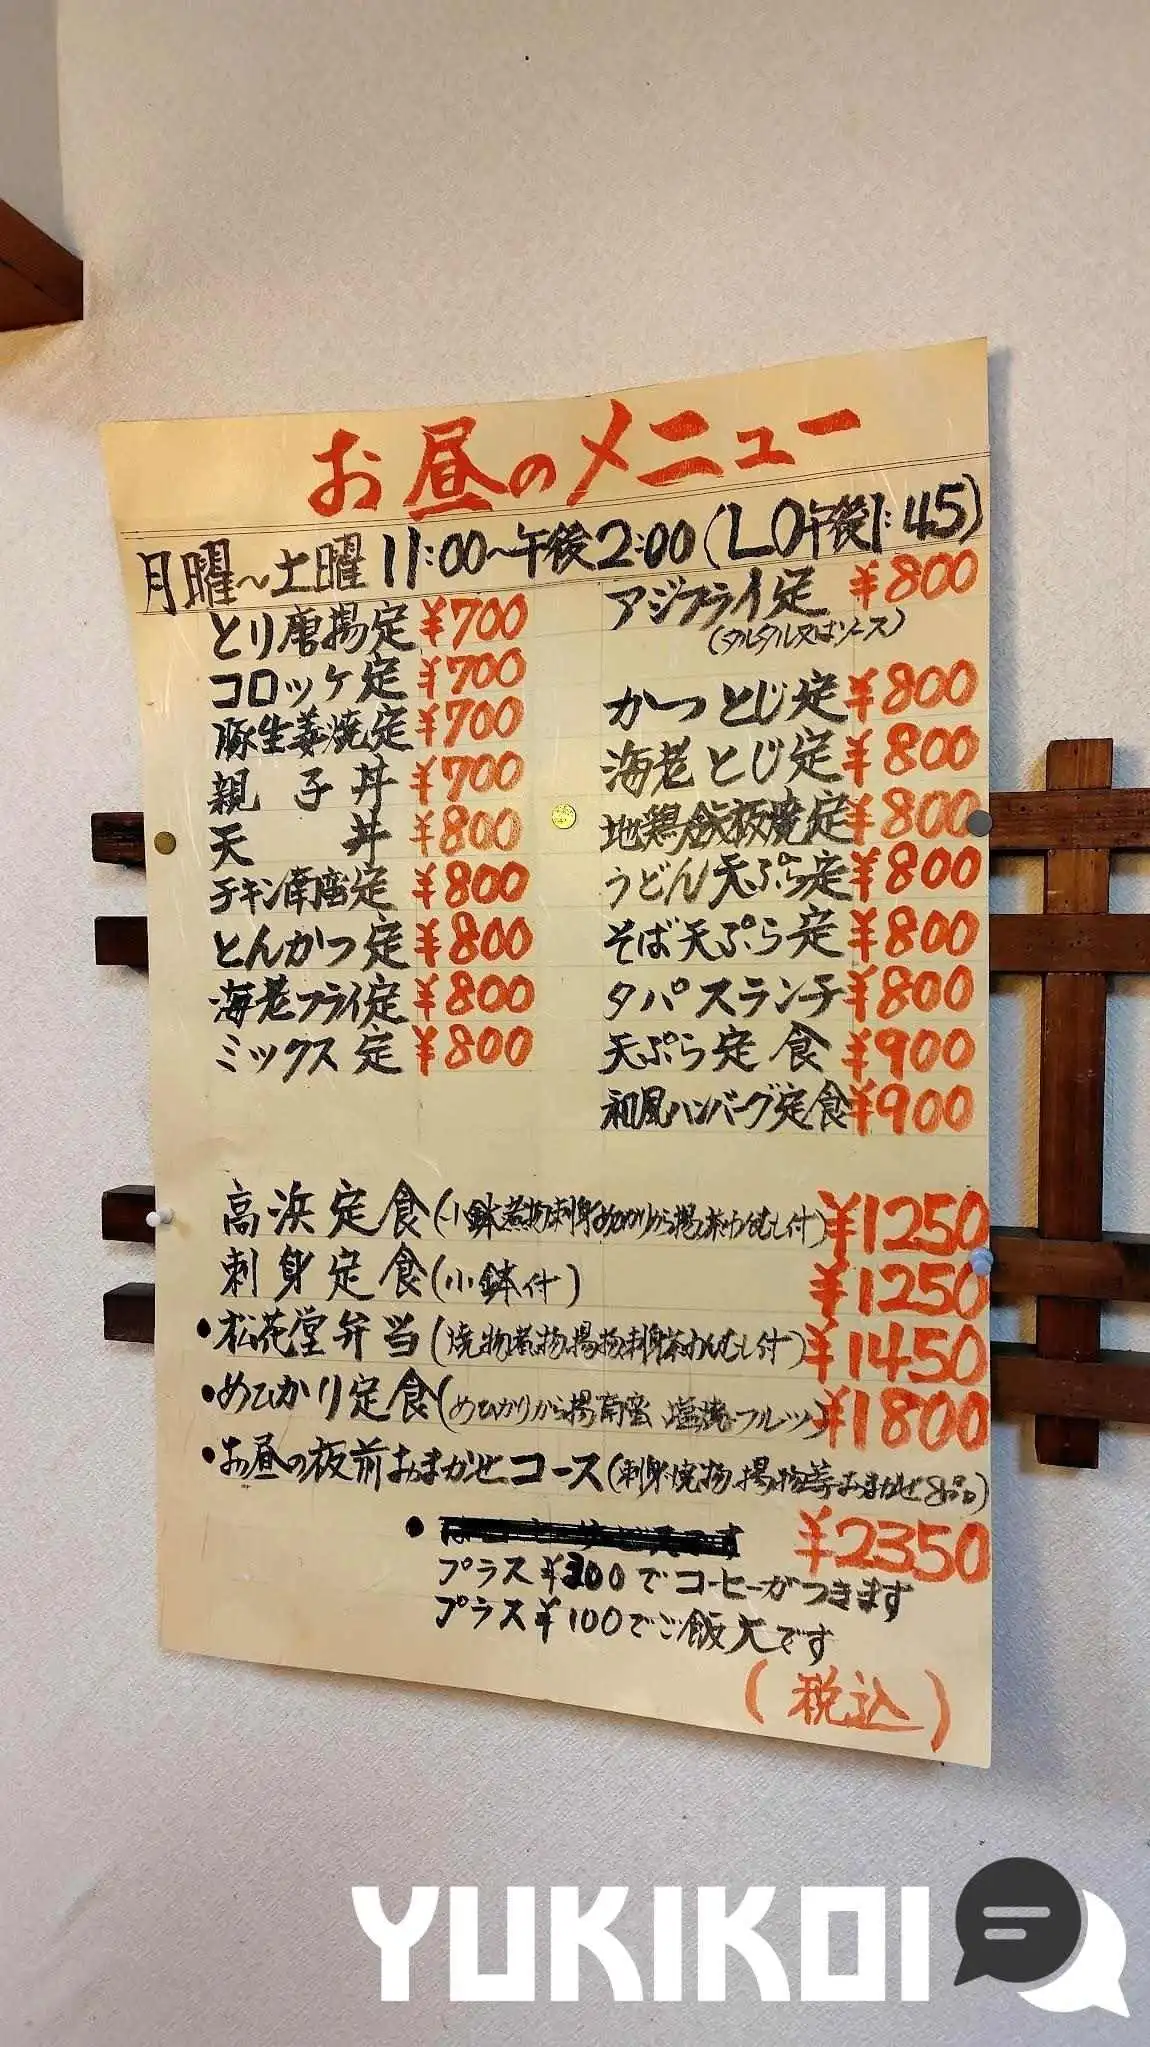 お昼のメニュー
月曜～土曜 11:00～午後2:00(LO午後1:45)
とり唐揚定 ¥700
コロッケ定 ¥700
豚生姜焼定 ¥700
親子丼 ¥700
天丼 ¥800
チキン南蛮定 ¥800
とんかつ定 ¥800
海老フライ定 ¥800
ミックス定 ¥800
アジフライ定 ¥800
(タルタル又はソース)
かつとじ定 ¥800
海老とじ定 ¥800
地鶏鉄板焼定 ¥800
うどん天ぷら定 ¥800
そば天ぷら定 ¥800
タパスランチ ¥800
天ぷら定食 ¥900
和風ハンバーグ定食 ¥900
高浜定食(小鉢煮物刺身めひかりから揚茶わんむし付) ¥1250
刺身定食(小鉢付) ¥1250
・松花堂弁当(焼物煮物揚物刺身茶わんむし付) ¥1450
・めひかり定食(めひかりから揚南蛮 塩焼・フルツ) ¥1800
・お昼の板前おまかせコース(刺身焼物揚物等おまかせ8品)
¥2350
プラス¥200でコーヒーがつきます
プラス¥100でご飯大です
(税込)
YUKIKOI